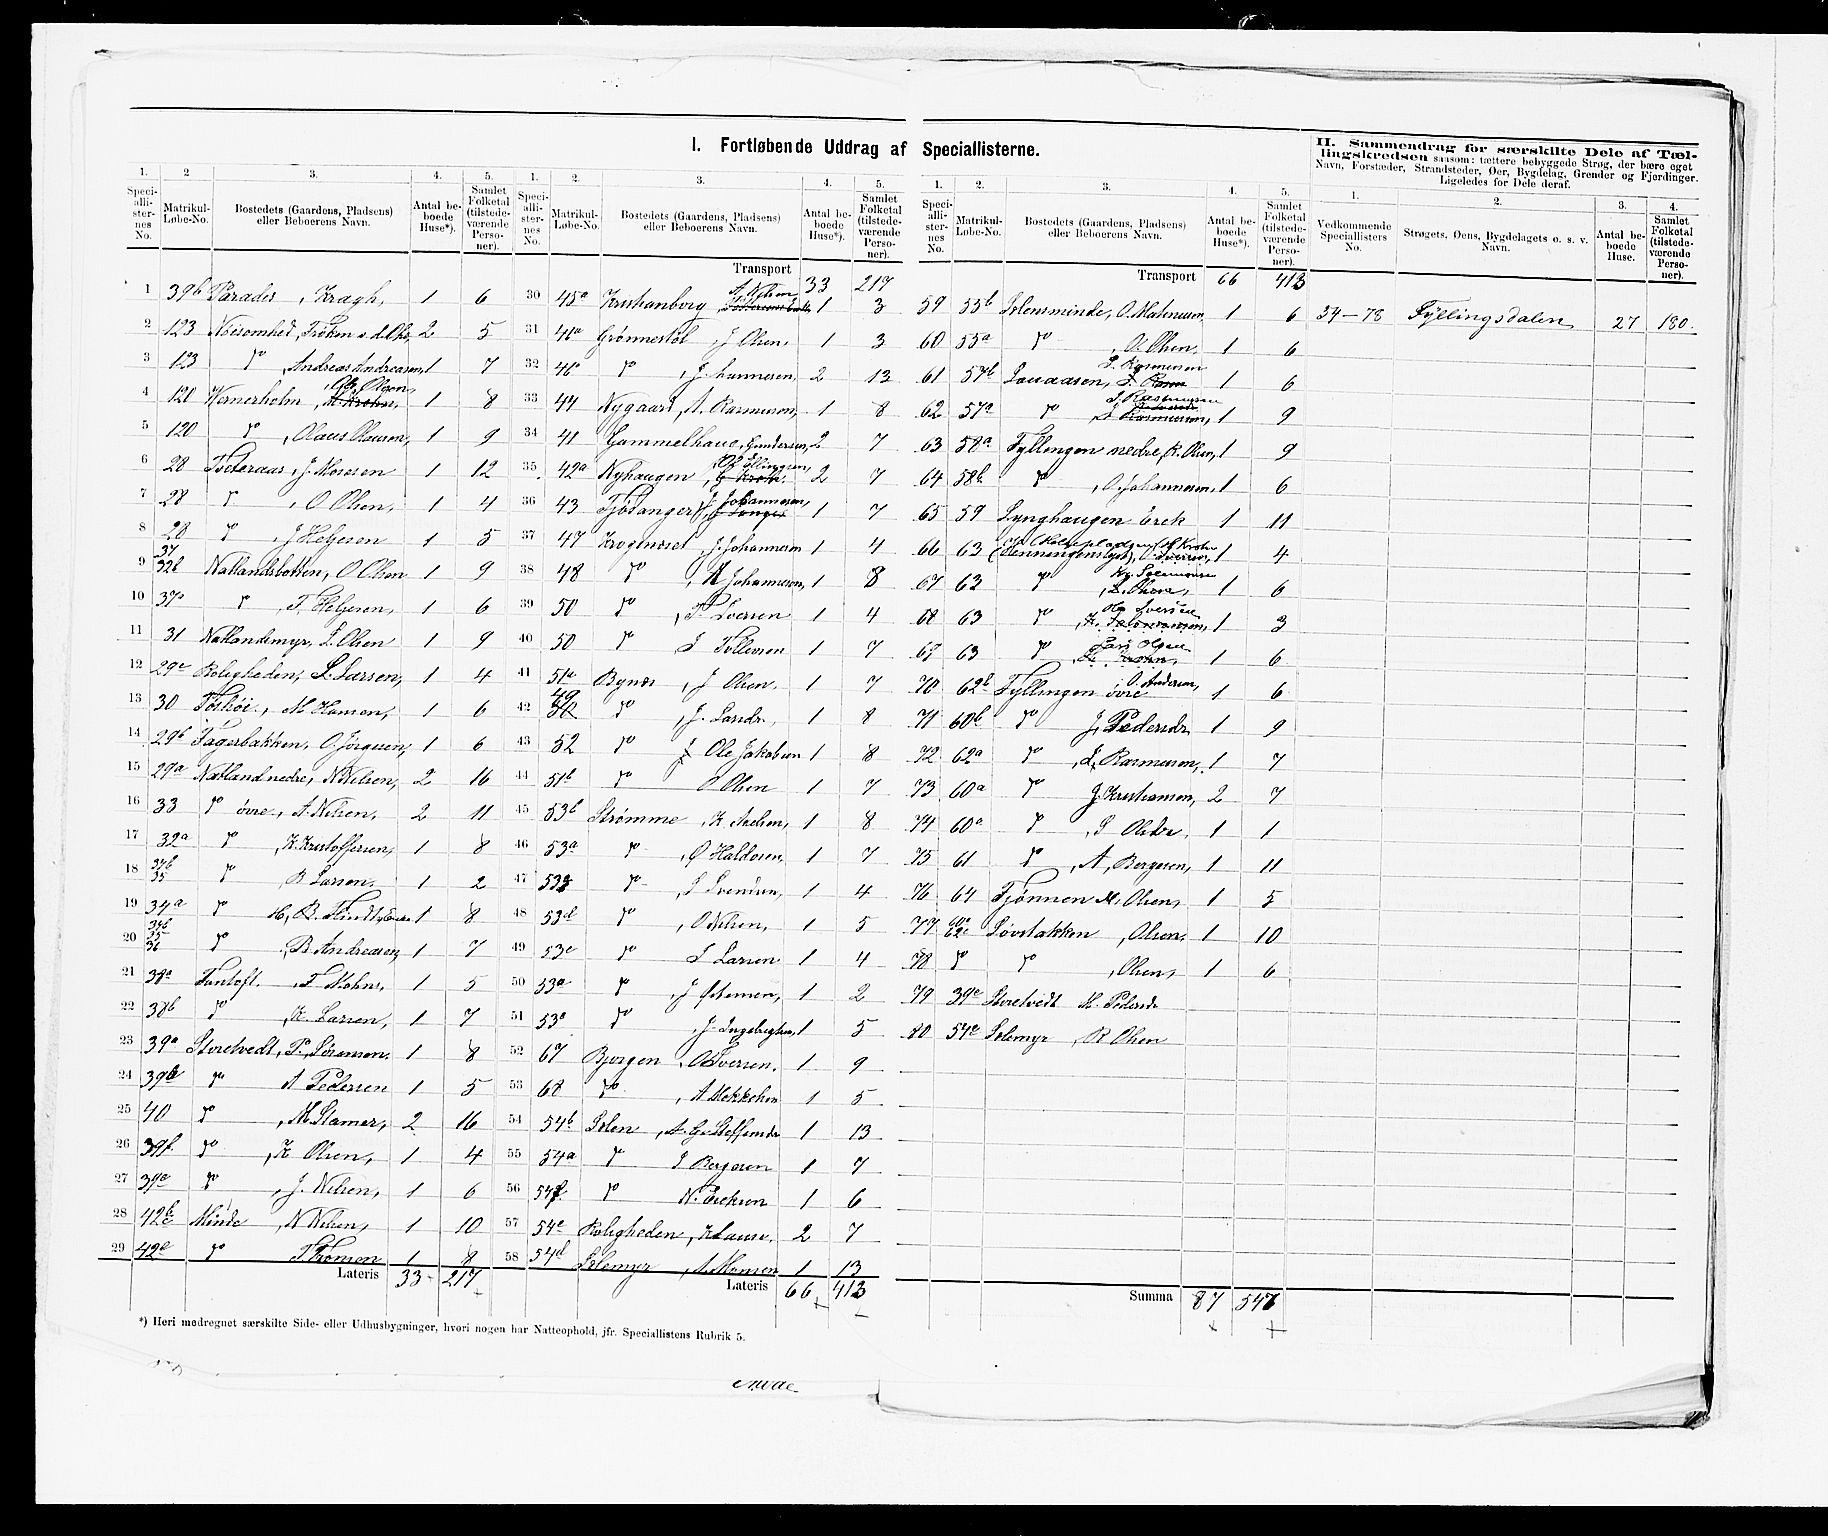 I. Fortløbende Uddrag af Speciallisterne.
II. Sammendrag for særskilte Dele af Tællingskredsen saasom: tættere bebyggede Strøg, der bære eget
Navn, Forstæder, Strandsteder, Øer, Bygdelag, Grender og Fjerdinger.
Ligeledes for Dele deraf.
1. 2 3. 4. 5.
Speciallisternes No. Matrikul-Løbe-No. Bostedets (Gaardens, Pladsens) eller Beboerens Navn. Antal beboede Huse*). Samlet Folketal (tilstedeværende Personer).
1 39b Parades, Kragh, 1 6
2 123 2 5
3 123 do, Andreas Andreasen, 1 7
4 120 Wernerholm, Olson, 1 8
5 120 do, Olaus Olausen, 1 9
6 28 J. Monsen 1 12
7 28 do, O Olsen, 1 4
8 28 do, J Helgesen 1 5
9 37 32b Natlandsbotten, O Olsen 1 9
10 37a do T. Helgesen, 1 6
11 31 Natlandsmyr, L. Olsen 1 9
12 29c Roligheden, L. Larsen, 1 4
13 30 M Hansen, 1 6
14 29b Fagerbakken, O. Jørgesen, 1 6
15 29a Natland nedre, N Nilsen, 2 16
16 33 do övre, A. Nilsen, 2 11
17 32a do, K. Kristoffersen, 1 8
18 34b 35 do, B Larsen. 1 2
19 34a do 1 8
20 34b 35 36 do, B Andreasen, 1 7
21 38a Fantoft, F Mohn, 1 5
22 38b do, K. Larsen, 1 7
23 39a Storetvedt, P. Sörensen, 1 8
24 39b do A Pedersen 1 5
25 40 do, M. Stamer, 2 16
26 39f do, K Olsen, 1 4
27 39e do, J. Nilsen, 1 6
28 42b c Minde, N Nilsen, 1 10
29 42e do 1 8
Lateris 33 217
1. 2. 3. 4. 5.
Speciallisternes No. Matrikul-Løbe-No. Bostedets (Gaardens, Pladsens) eller Beboerens Navn. Antal beboede Huse*). Samlet Folketal (tilstedeværende Personer).
Transport 33 217
30 45a Kristianborg, A. Nilsen 1 3
31 46a Grønnestøl, J Olsen, 1 3
32 46 do, J. 2 13
33 44 Nygaard, A. Rasmusen, 1 8
34 41 Gammelhaug, Gundersen, 2 7
35 42a Nyhaugen, Ellingsen, 2 7
36 43 Fjösanger, J Johannesen, 1 7
37 47 Krogenæset, J. Johannesen 1 4
38 48 do, Johannesen, 1 8
39 50 do, P. Iversen 1 4
40 50 do 1 7
41 51a Bynæs, J Olsen. 1 7
42 49 do, J. Larsdr., 1 8
43 52 do Ole Jakobsen 1 8
44 51b do O Olsen 1 7
45 53b Strømme, K. Nielsen, 1 8
46 53a do, O Haldosen, 1 7
47 53 do 1 4
48 53d do, O Nilsen, 1 5
49 53c do L Larsen 1 4
50 53a do 1 2
51 53 do, J. Ingebrigtsen, 1 5
52 67 Bjorgen, O Iversen. 1 9
53 68 do, A Mekkelsen 1 5
54 54b Selen, A. G. Steffensdr 1 13
55 54a do Bergesen 1 7
56 54f. do N. Ericksen 1 6
57 54e Roligheden 2 7
58 54d Selemyr, A. Monsen 1 13
Lateris 66 413
1. 2. 3. 4. 5.
Speciallisternes No. Matrikul-Løbe-No. Bostedets (Gaardens, Pladsens) eller Beboerens Navn. Antal beboede Huse*). Samlet Folketal (tilstedeværende Personer).
Transport 66 413
59 55b Selensminde, O. Matnesen, 1 6
60 55a do, O. Olsen. 1 6
61 57b Rasmusen 1 6
62 57a do Rasmusen, 1 9
63 58a Fyllingen nedre, R. Olsen, 1 9
64 58b do, O. Johannesen, 1 6
65 59 Lynghaugen Erek 1 11
66 63 M Krohn 1 4
67 63 do 1 6
68 63 do Iversen 1 3
69 63 do Lars Olsen 1 6
70 62b Fyllingen övre, O. Andersen, 1 6
71 60b do J. Pedersdr 1 9
72 62a do, L. Rasmusen, 1 7
73 60a do J. Kristiansen, 2 7
74 60a do Olsdr. 1 1
75 61 do, A. Bergesen, 1 11
76 64 Fjønnen M. Olsen, 1 5
77 60c 62c Lövstakken, Olsen. 1 10
78 do do, Olsen, 1 6
79 39c Storetvedt M. Pedersdr
80 54c Selemyr, R Olsen
Summa 87 547
1. 2. 3. 4.
Vedkommende Speciallisters No. Strøgets, Øens, Bygdelagets o. s. v. Navn. Antal beboede Huse. Samlet Folketal (tilstedeværende Personer).
34–78 Fyllingsdalen 27 180.
*) Heri medregnet særskilte Side- eller Udhusbygninger, hvori nogen har Natteophold, jfr. Speciallistens Rubrik 5.